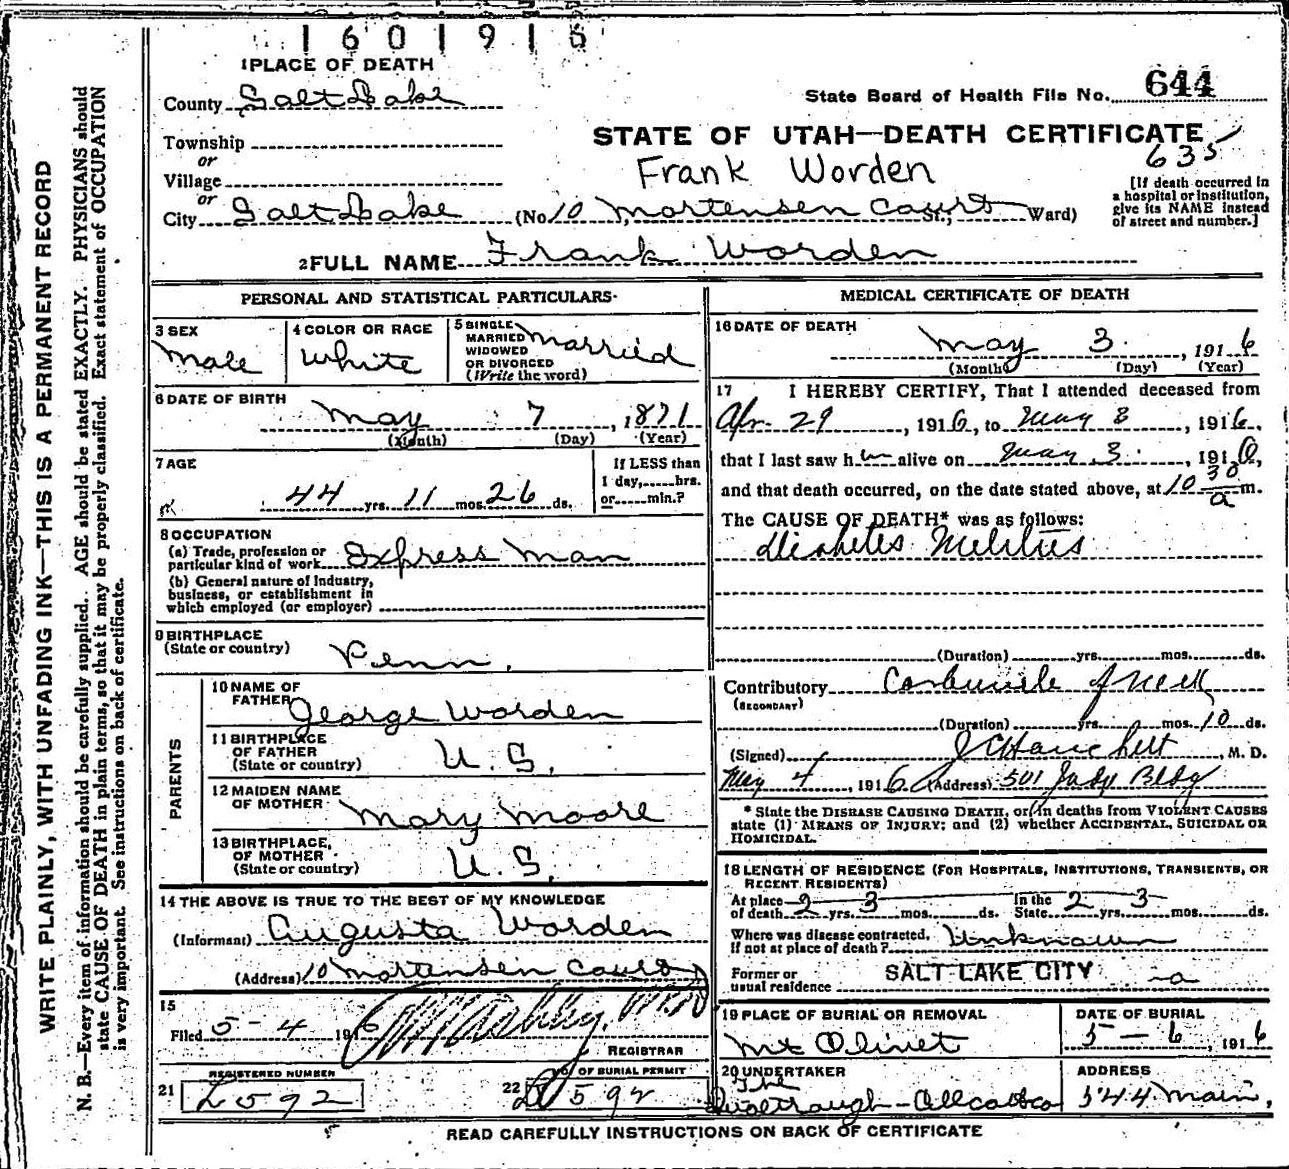 1601915
1 PLACE OF DEATH
County Salt Lake
State Board of Health File No. 644
STATE OF UTAH—DEATH CERTIFICATE
635
Township
or
Village
Frank Worden
[If death occurred in a hospital or institution, give its NAME instead of street and number.]
or
City Salt Lake (No. 10 Mortensen Court St., Ward)
2 FULL NAME Frank Worden
PERSONAL AND STATISTICAL PARTICULARS
3 SEX Male
4 COLOR OR RACE White
5 SINGLE MARRIED WIDOWED OR DIVORCED (Write the word) Married
6 DATE OF BIRTH May 7, 1871
(Month) (Day) (Year)
7 AGE
44 yrs. 11 mos. 26 ds.
If LESS than 1 day, hrs. or min.?
8 OCCUPATION
(a) Trade, profession or particular kind of work Express Man
(b) General nature of Industry, business, or establishment in which employed (or employer)
9 BIRTHPLACE
(State or country) Penn.
PARENTS
10 NAME OF FATHER George Worden
11 BIRTHPLACE OF FATHER (State or country) U. S.
12 MAIDEN NAME OF MOTHER Mary Moore
13 BIRTHPLACE OF MOTHER (State or country) U. S.
14 THE ABOVE IS TRUE TO THE BEST OF MY KNOWLEDGE
(Informant) Augusta Worden
(Address) 10 Mortensen Court
15
Filed 5-4 1916
REGISTRAR
21 REGISTERED NUMBER 2592
22 No. OF BURIAL PERMIT 592
MEDICAL CERTIFICATE OF DEATH
16 DATE OF DEATH
May 3, 1916
(Month) (Day) (Year)
17 I HEREBY CERTIFY, That I attended deceased from
Apr. 29, 1916, to May 3, 1916,
that I last saw him alive on May 3, 1916,
and that death occurred, on the date stated above, at 10 30 a m.
The CAUSE OF DEATH* was as follows:
Diabetes Melitus
(Duration) yrs. mos. ds.
Contributory Carbuncle of Neck
(SECONDARY)
(Duration) yrs. mos. 10 ds.
(Signed) , M. D.
May 4, 1916 (Address) 501 Judge Bldg
* State the DISEASE CAUSING DEATH, or, in deaths from VIOLENT CAUSES
state (1) MEANS OF INJURY; and (2) whether ACCIDENTAL, SUICIDAL OR
HOMICIDAL.
18 LENGTH OF RESIDENCE (FOR HOSPITALS, INSTITUTIONS, TRANSIENTS, OR
RECENT RESIDENTS)
At place of death 2 yrs. 3 mos. ds. In the State 2 yrs. 3 mos. ds.
Where was disease contracted, If not at place of death? Unknown
Former or usual residence SALT LAKE CITY
19 PLACE OF BURIAL OR REMOVAL Mt Olivet
DATE OF BURIAL 5-6, 1916
20 UNDERTAKER The
ADDRESS 544 Main,
READ CAREFULLY INSTRUCTIONS ON BACK OF CERTIFICATE
WRITE PLAINLY, WITH UNFADING INK—THIS IS A PERMANENT RECORD
N. B.—Every item of information should be carefully supplied. AGE should be stated EXACTLY. PHYSICIANS should
state CAUSE OF DEATH in plain terms, so that it may be properly classified. Exact statement of OCCUPATION
is very important. See instructions on back of certificate.